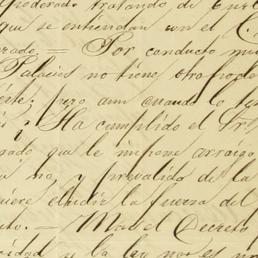 apoderado tratando de
que se entiendan con el C.
erado.— Por conducto
Palacios no tiene otro pode
ente; pero aun cuando lo
Ha cumplido el Sr.
rado que le impone arraigo
ya no, y prevalido de la
uiere eludir la fuerza del
nto.— Mas el Decreto
ridad y la ley no es